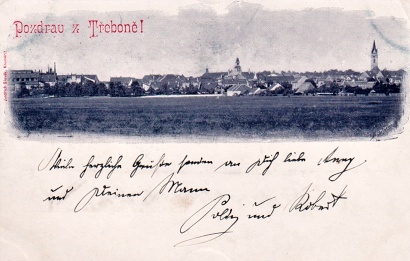 Pozdrav z Třeboně!
Viele herzliche Grüße senden an Dich liebe
und Deinen Mann
Poldi und Robert